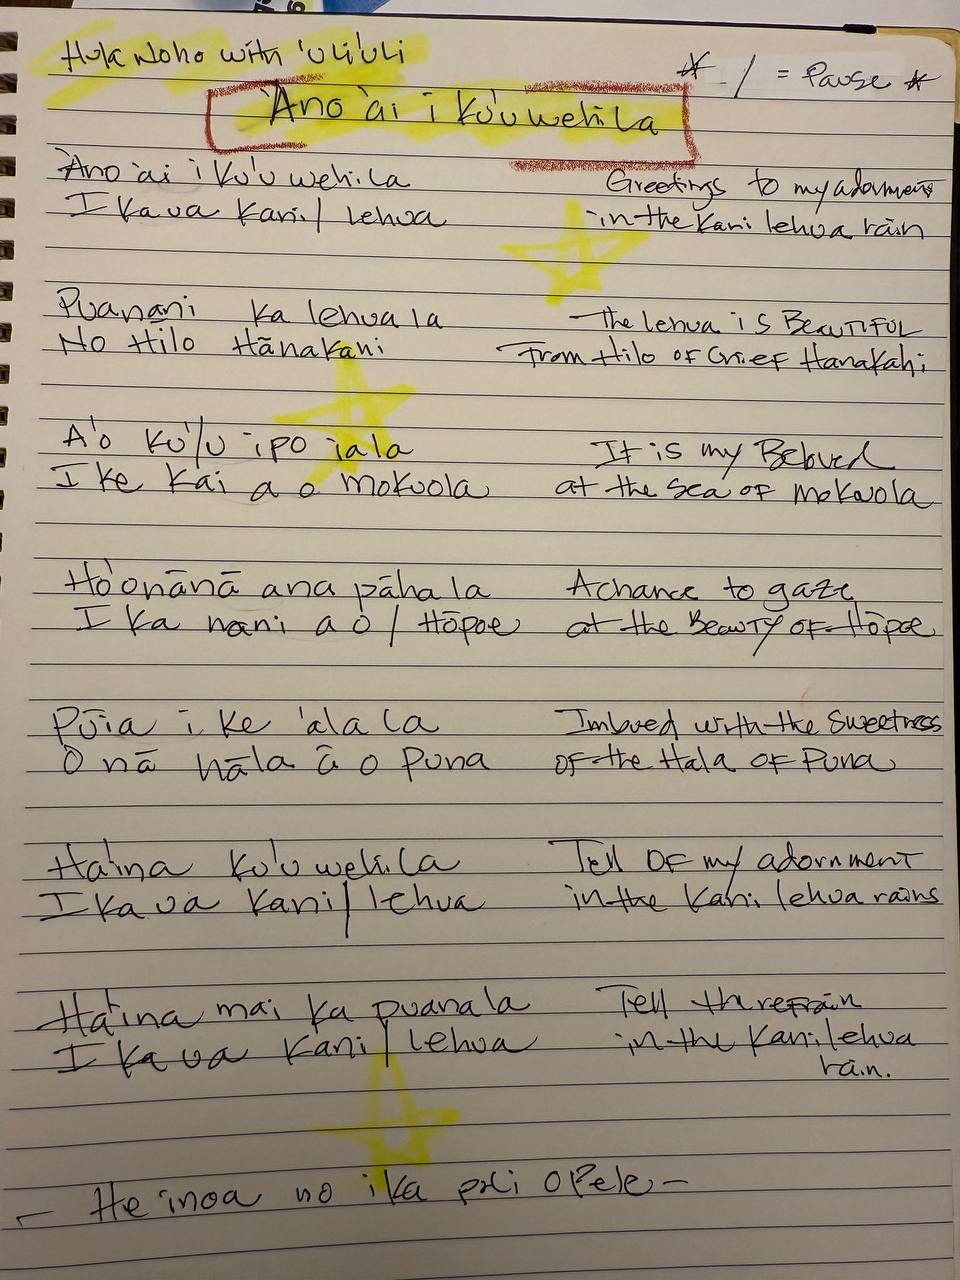 Hula Noho with 'uli'uli
* / = Pause *
'Ano 'ai i ku'u wehi la
'Ano 'ai i ku'u wehi la
Greetings to my adornment
I ka ua Kani / lehua
in the Kani lehua rain
Puanani ka lehua la
The lehua is Beautiful
No Hilo Hānakahi
From Hilo of Chief Hanakahi
A'o ku'/u ipo iala
It is my Beloved
I ke kai a o mokuola
at the sea of mokuola
Ho'onānā ana pāha la
A chance to gaze
I ka nani a o / Hōpoe
at the Beauty of Hōpoe
Pūia i ke 'ala la
Imbued with the sweetness
O nā hāla ā o Puna
of the Hala of Puna
Ha'ina ku'u wehi la
Tell of my adornment
I ka ua Kani / lehua
in the Kani lehua rains
Ha'ina mai ka puana la
Tell th refrain
I ka ua Kani / lehua
in the Kani lehua
rain.
- He inoa no i ka poli o Pele -